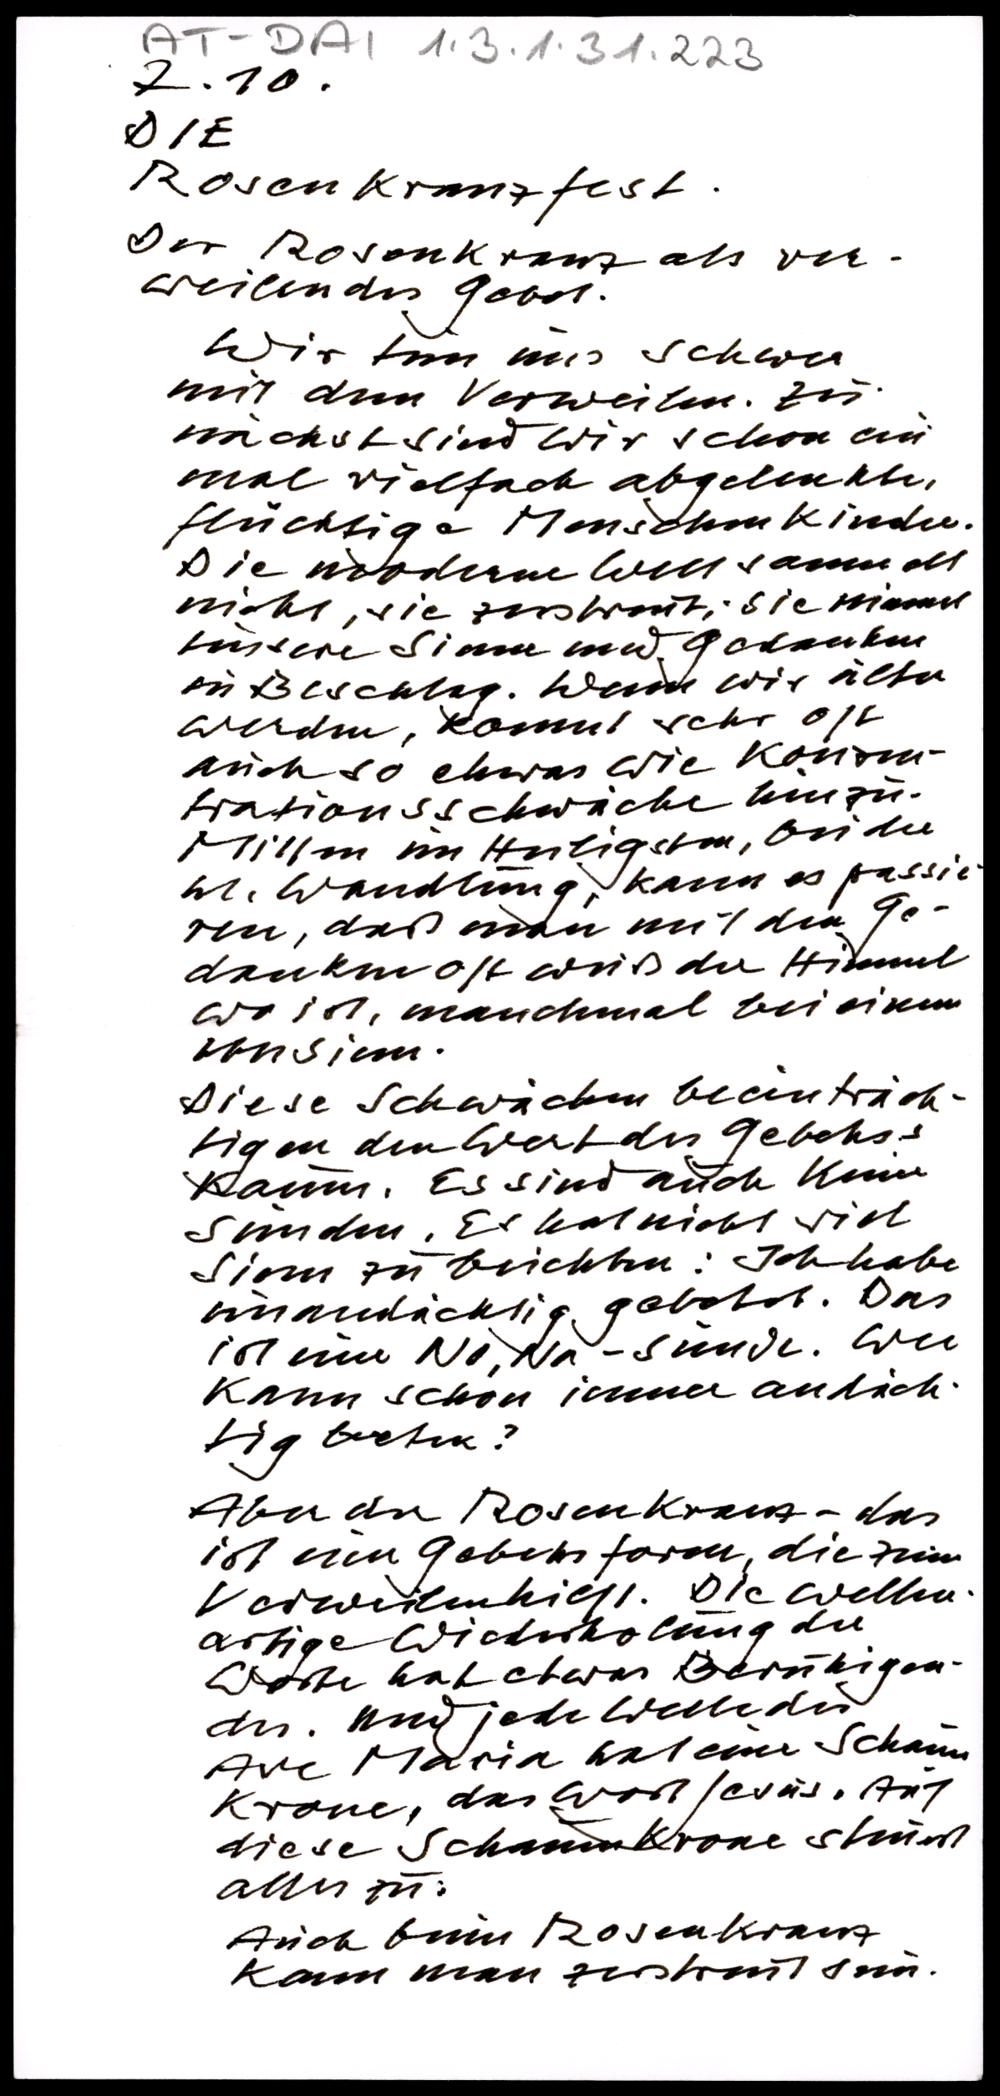 AT-DAI 1.3.1.31.223
7.10.
DIE
Rosenkranzfest.
Der Rosenkranz als ver-
weilendes Gebet.
Wir tun uns schwer
mit dem Verweilen. Zu-
nächst sind wir schon ein
mal vielfach abgelenkte,
flüchtige Menschenkinder.
Die moderne Welt sammelt
nicht, sie zerstreut, sie nimmt
unsere Sinne und Gedanken
in Beschlag. Wenn wir älter
werden, kommt sehr oft
auch so etwas wie Konzen-
trationsschwäche hinzu.
Mitten im Heiligsten, bei der
hl. Wandlung, kann es passie
ren, daß man mit den Ge-
danken oft weiß der Himmel
wo ist, manchmal bei einem
Unsinn.
Diese Schwächen beeinträch-
tigen den Wert des Gebetes
kaum. Es sind auch keine
Sünden. Es hat nicht viel
Sinn zu beichten: Ich habe
unandächtig gebetet. Das
ist eine No, Na-Sünde. Wer
kann schon immer andäch-
tig beten?
Aber der Rosenkranz - das
ist eine Gebetsform, die zum
Verweilen hilft. Die wellen-
artige Wiederholung der
Worte hat etwas Beruhigen-
des. Und jede Welle des
Ave Maria hat eine Schaum
krone, das Wort Jesus. Auf
diese Schaumkrone steuert
alles zu.
Auch beim Rosenkranz
kann man zerstreut sein.